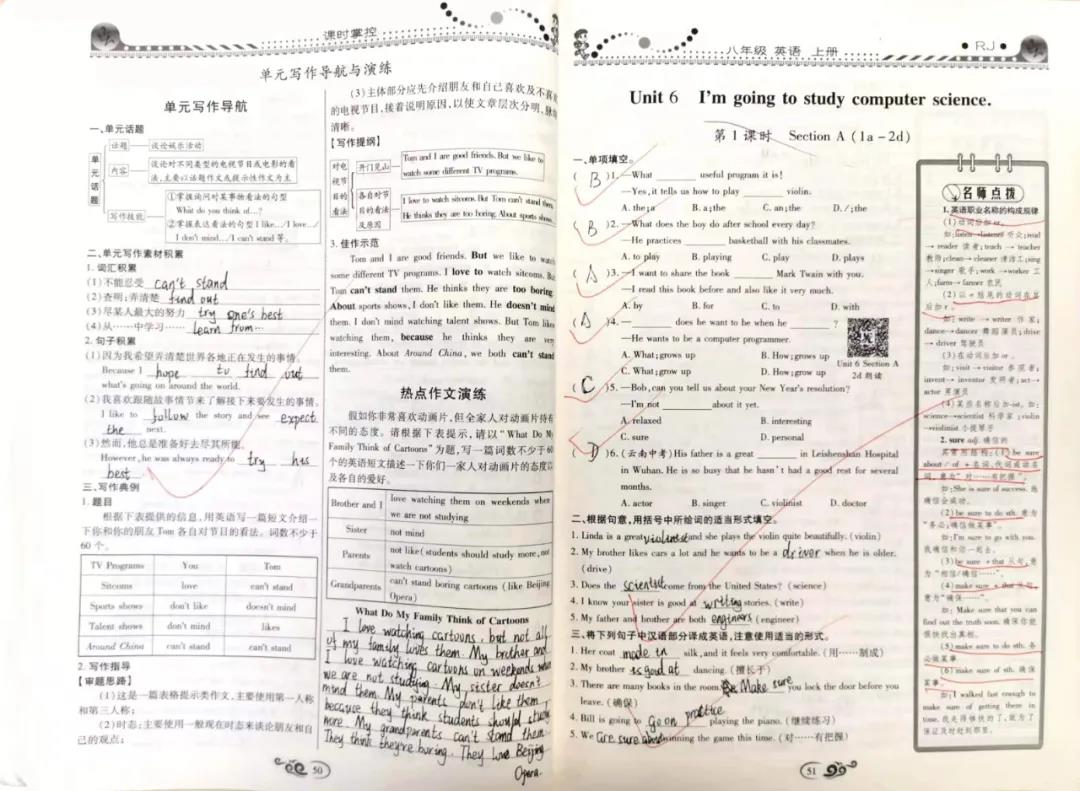 课时掌控
单元写作导航与演练
单元写作导航
一、单元话题
单元话题
话题 谈论娱乐活动
内容 谈论对不同类型的电视节目或电影的看
法,主要以话题作文或提示性作文为主
写作技能
①掌握询问对某事物看法的句型
What do you think of…?
②掌握表达看法的句型 I like…/I love…/
I don't mind…/I can't stand 等。
二、单元写作素材积累
1. 词汇积累
(1)不能忍受 can't stand
(2)查明;弄清楚 find out
(3)尽某人最大的努力 try one's best
(4)从……中学习…… learn from…
2. 句子积累
(1)因为我希望弄清楚世界各地正在发生的事情。
Because I hope to find out
what's going on around the world.
(2)我喜欢跟随故事情节来了解接下来要发生的事情。
I like to follow the story and see expect
the next.
(3)然而,他总是准备好去尽其所能。
However, he was always ready to try his
best
三、写作典例
1. 题目
根据下表提供的信息,用英语写一篇短文介绍一
下你和你的朋友 Tom 各自对节目的看法。词数不少于
60 个。
TV Programs You Tom
Sitcoms love can't stand
Sports shows don't like doesn't mind
Talent shows don't mind likes
Around China can't stand can't stand
2. 写作指导
【审题思路】
(1)这是一篇表格提示类作文,主要使用第一人称
和第三人称;
(2)时态:主要使用一般现在时态来谈论朋友和自
己的观点;
(3)主体部分应先介绍朋友和自己喜欢及不喜欢
的电视节目,接着说明原因,以使文章层次分明,脉
清晰。
【写作提纲】
对电视节目的看法
开门见山
Tom and I are good friends. But we like to
watch some different TV programs.
各自对节目的看法及原因
I love to watch sitcoms. But Tom can't stand them.
He thinks they are too boring. About sports shows
3. 佳作示范
Tom and I are good friends. But we like to watch
some different TV programs. I love to watch sitcoms. But
Tom can't stand them. He thinks they are too boring.
About sports shows, I don't like them. He doesn't mind
them. I don't mind watching talent shows. But Tom likes
watching them, because he thinks they are very
interesting. About Around China, we both can't stand
them.
热点作文演练
假如你非常喜欢动画片,但全家人对动画片持有
不同的态度。请根据下表提示,请以“What Do My
Family Think of Cartoons”为题,写一篇词数不少于60
个的英语短文描述一下你们一家人对动画片的态度以
及各自的爱好。
Brother and I love watching them on weekends when
we are not studying
Sister not mind
Parents not like(students should study more, not
watch cartoons)
Grandparents can't stand boring cartoons (like Beijing
Opera)
What Do My Family Think of Cartoons
I love watching cartoons, but not all
of my family loves them. My brother and
I love watching cartoons on weekends when
we are not studying. My sister doesn't
mind them. My parents don't like them,
because they think students should study
more. My grandparents can't stand them.
They think they're boring. They love Beijing
Opera.
50
八年级 英语 上册
RJ
Unit 6 I'm going to study computer science.
第 1 课时 Section A (1a-2d)
一、单项填空。
( B )1. —What ______ useful program it is!
—Yes, it tells us how to play ______ violin.
A. the;a B. a;the C. an;the D. /;the
( B )2. —What does the boy do after school every day?
—He practices ______ basketball with his classmates.
A. to play B. playing C. play D. plays
( A )3. —I want to share the book ______ Mark Twain with you.
—I read this book before and also like it very much.
A. by B. for C. to D. with
4. —______ does he want to be when he ______ ?
—He wants to be a computer programmer.
A. What;grows up B. How;grows up
C. What;grow up D. How;grow up
Unit 6 Section A
2d 朗读
( C )5. —Bob, can you tell us about your New Year's resolution?
—I'm not ______ about it yet.
A. relaxed B. interesting
C. sure D. personal
( D )6. (云南中考)His father is a great ______ in Leishenshan Hospital
in Wuhan. He is so busy that he hasn't had a good rest for several
months.
A. actor B. singer C. violinist D. doctor
二、根据句意,用括号中所给词的适当形式填空。
1. Linda is a great violinist and she plays the violin quite beautifully. (violin)
2. My brother likes cars a lot and he wants to be a driver when he is older.
(drive)
3. Does the scientist come from the United States? (science)
4. I know your sister is good at writing stories. (write)
5. My father and brother are both engineers (engineer)
三、将下列句子中汉语部分译成英语,注意使用适当的形式。
1. Her coat made in silk, and it feels very comfortable. (用……制成)
2. My brother is good at dancing. (擅长于)
3. There are many books in the room. Make sure you lock the door before you
leave. (确保)
4. Bill is going to go on practice playing the piano. (继续练习)
5. We are sure about winning the game this time. (对……有把握)
51
名师点拨
1. 英语职业名称的构成规律
(1)动词后加 er。
如:listen→listener 听众;read
→reader 读者;teach→teacher
教师;clean→cleaner 清洁工;sing
→singer 歌手;work→worker 工
人;farm→farmer 农民
(2)以 e 结尾的动词在其
后加 r。
如:write→writer 作家;
dance→dancer 舞蹈演员;drive
→driver 驾驶员
(3)在动词后加 or。
如:visit→visitor 参观者;
invent→inventor 发明者;act→
actor 男演员
(4)某些名称后加-ist。如:
science→scientist 科学家;violin
→violinist 小提琴手
2. sure adj. 确信的
其常用结构:(1)be sure
about / of + 名词、代词或动名
词,意为“对……有把握”。
如:She is sure of success. 她
确信会成功。
(2)be sure to do sth. 意为
“务必;确信做某事”。
如:I'm sure to go with you.
我确信和你一起去。
(3)be sure + that 从句,意
为“相信/确信……”。
(4)make sure + that 从句,
意为“确保……”。
如:Make sure that you can
find out the truth soon. 确保你能
很快找出真相。
(5)make sure to do sth. 务
必做某事
(6)make sure of sth. 确保
某事
如:I walked fast enough to
make sure of getting there in
time. 我走得够快的了,就为了
保证及时赶到那里。